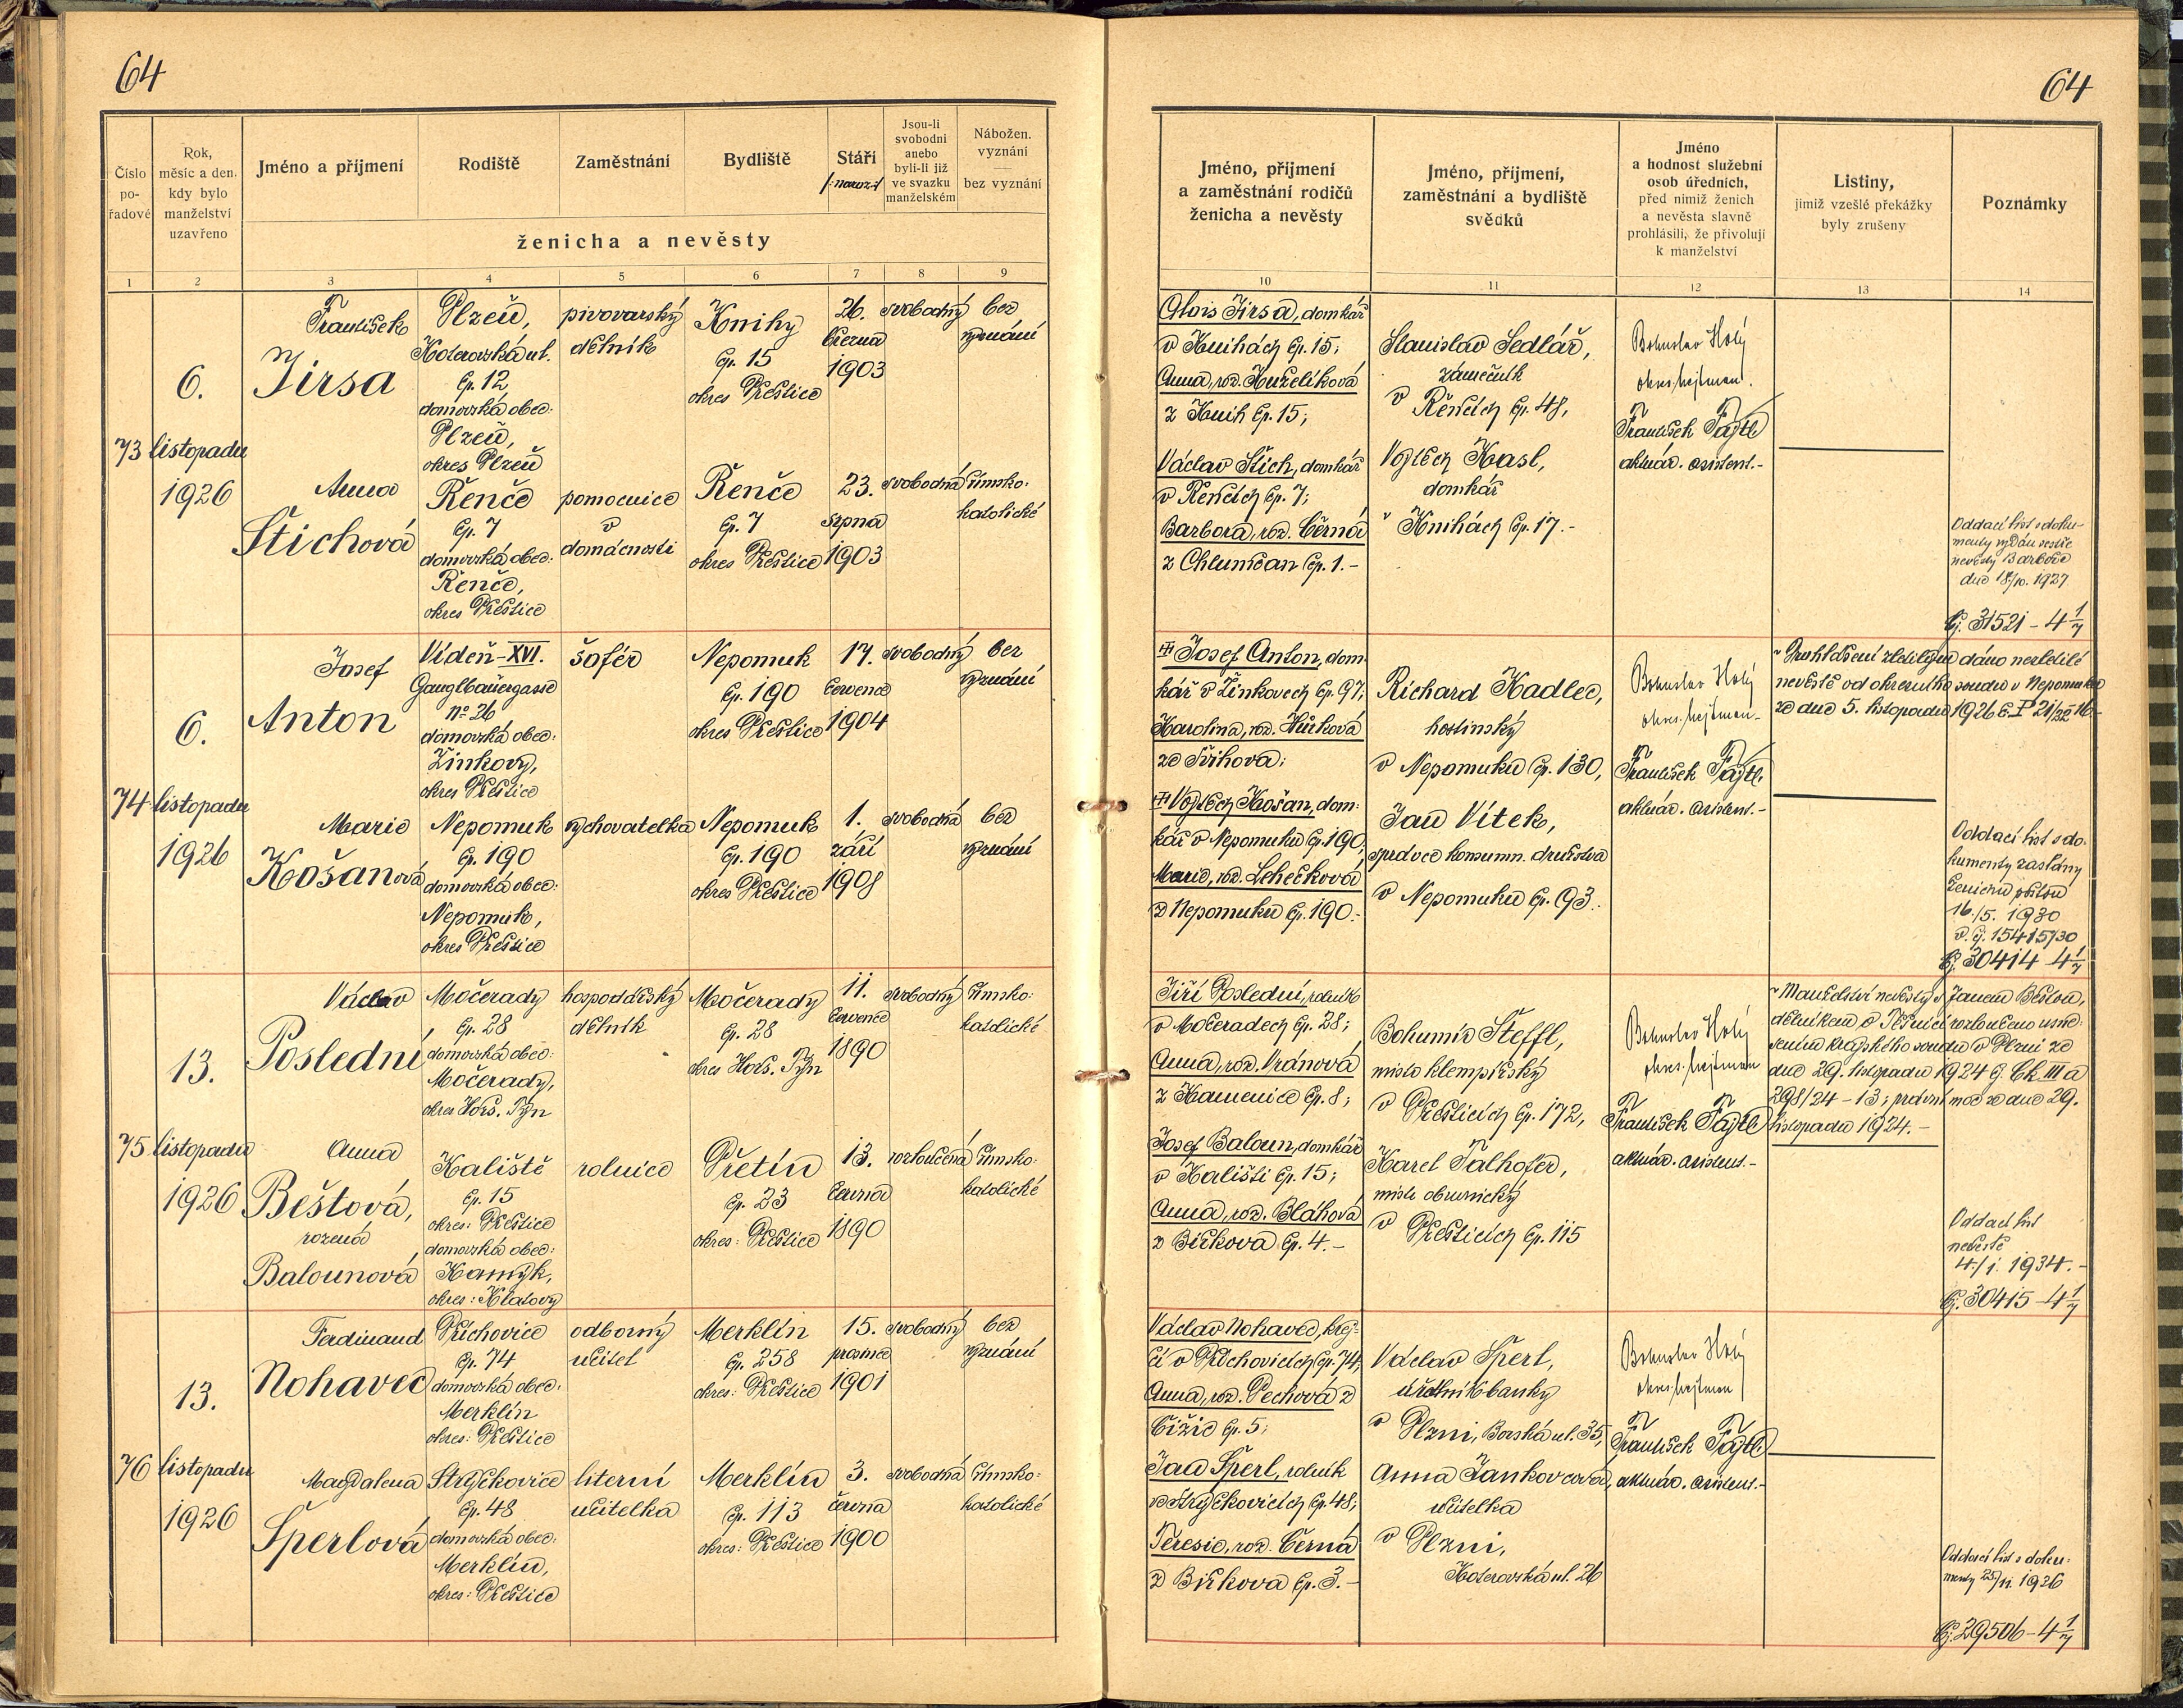 64
Číslo
po-
řadové
Rok,
měsíc a den,
kdy bylo
manželství
uzavřeno
Jméno a příjmení
Rodiště
Zaměstnání
Bydliště
Stáří
/:naroz:/
Jsou-li
svobodni
anebo
byli-li již
ve svazku
manželském
Nábožen.
vyznání
—
bez vyznání
ženicha a nevěsty
1 2 3 4 5 6 7 8 9
73
6.
listopadu
1926
František
Jirsa
Plzeň,
Koterovská ul.
čp. 12
domovská obec:
Plzeň,
okres Plzeň
pivovarský
dělník
Knihy
čp. 15
okres Přeštice
26.
června
1903
svobodný
bez
vyznání
Anna
Štichová
Řenče
čp. 7
domovská obec:
Řenče,
okres Přeštice
pomocnice
v
domácnosti
Řenče
čp. 7
okres Přeštice
23.
srpna
1903
svobodná
římsko-
katolické
74
6.
listopadu
1926
Josef
Anton
Vídeň-XVI.
Ganglbauergasse
No 26
domovská obec:
Žinkovy,
okres Přeštice
šofér
Nepomuk
čp. 190
okres Přeštice
17.
července
1904
svobodný
bez
vyznání
Marie
Košanová
Nepomuk
čp. 190
domovská obec:
Nepomuk,
okres Přeštice
vychovatelka
Nepomuk
čp. 190
okres Přeštice
1.
září
1908
svobodná
bez
vyznání
75
13.
listopadu
1926
Václav
Poslední
Močerady
čp. 28
domovská obec:
Močerady,
okres Hors. Týn
hospodářský
dělník
Močerady
čp. 28
okres Hors. Týn
11.
července
1890
svobodný
římsko-
katolické
Anna
Beštová,
rozená
Balounová
Kaliště
čp. 15
okres: Přeštice
domovská obec:
Kamýk,
okres: Klatovy
rolnice
Přetín
čp. 23
okres: Přeštice
13.
června
1890
rozloučená
římsko-
katolické
76
13.
listopadu
1926
Ferdinand
Nohavec
Příchovice
čp. 74
domovská obec:
Merklín
okres: Přeštice
odborný
učitel
Merklín
čp. 258
okres: Přeštice
15.
prosince
1901
svobodný
bez
vyznání
Magdalena
Šperlová
Strýčkovice
čp. 48
domovská obec:
Merklín,
okres: Přeštice
literní
učitelka
Merklín
čp. 113
okres: Přeštice
3.
června
1900
svobodná
římsko-
katolické
64
Jméno, příjmení
a zaměstnání rodičů
ženicha a nevěsty
Jméno, příjmení,
zaměstnání a bydliště
svědků
Jméno
a hodnost služební
osob úředních,
před nimiž ženich
a nevěsta slavně
prohlásili, že přivolují
k manželství
Listiny,
jimiž vzešlé překážky
byly zrušeny
Poznámky
10 11 12 13 14
Alois Jirsa, domkář
v Knihách čp. 15;
Anna, roz. Kuželíková
z Knih čp. 15;
Václav Štich, domkář
v Řenčích čp. 7;
Barbora, roz. Černá
z Chlumčan čp. 1.-
Stanislav Sedlář,
zámečník
v Řenčích čp. 48,
Vojtěch Kasl,
domkář
v Knihách čp. 17.-
Bohuslav Holý
okres. hejtman.
František Fajtl
aktuár. asistent.-
Oddací list s doku-
menty vydán sestře
nevěsty Barboře
dne 18/10. 1927
Čj. 31521 - 4 1/7
Josef Anton, dom-
kář v Žinkovech čp. 97;
Karolina, roz. Hůrková
ze Švihova;
Vojtěch Košan, dom-
kář v Nepomuku čp. 190;
Marie, roz. Lehečková
z Nepomuku čp. 190.-
Richard Kadlec,
hostinský
v Nepomuku čp. 130,
Jan Vítek,
správce konsumn. družstva
v Nepomuku čp. 93.-
Bohuslav Holý
okres. hejtman.-
František Fajtl
aktuár. asistent.-
Prohlášení zletilým dáno nezletilé
nevěstě od okresního soudu v Nepomuku
ze dne 5. listopadu 1926 č. P 21/22-16.-
Oddací list s do-
kumenty zaslány
ženichu poštou
16./5. 1930
v. čj. 15415/30
Čj. 30414 - 4 1/7
Jiří Poslední, rolník
v Močeradech čp. 28;
Anna, roz. Vránová
z Kamenice čp. 8;
Josef Baloun, domkář
v Kališti čp. 15;
Anna, roz. Bláhová
z Biřkova čp. 4.-
Bohumír Šteffl,
mistr klempířský
v Přešticích čp. 172,
Karel Talhofer,
mistr obuvnický
v Přešticích čp. 115
Bohuslav Holý
okres. hejtman
František Fajtl
aktuár. asistent.-
Manželství nevěsty s Janem Beštou,
dělníkem v rozloučeno usne-
sením krajského soudu v Plzni ze
dne 29. listopadu 1924 čj. Ck III a
298/24 - 13; právní moc ze dne 29.
listopadu 1924.-
Oddací list
nevěstě
4./1. 1934.-
Čj. 30415 - 4 1/7
Václav Nohavec, krej-
čí v Příchovicích čp. 74;
Anna, roz. Pechová z
Čižic čp. 5;
Jan Šperl, rolník
ve Strýčkovicích čp. 48;
Teresie, roz. Černá
z Biřkova čp. 3.-
Václav Šperl,
úředník banky
v Plzni, Borská ul. 35,
Anna Jankovcová,
učitelka
v Plzni,
Koterovská ul. 26
Bohuslav Holý
okres. hejtman
František Fajtl
aktuár. asistent.-
Oddací list s doku-
menty 25/11. 1926
Čj. 29506 - 4 1/7